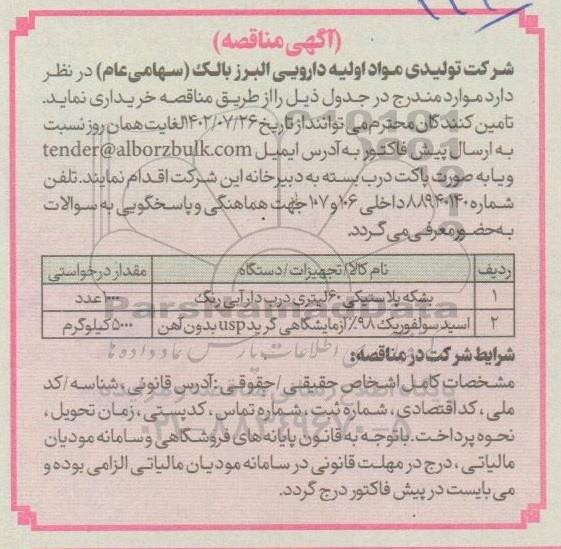 (آگهی مناقصه)
شرکت تولیدی مواد اولیه دارویی البرز بالک (سهامی عام) در نظر
دارد موارد مندرج در جدول ذیل را از طریق مناقصه خریداری نماید.
تامین کنندگان محترم می توانند از تاریخ ۱۴۰۲/۰۷/۲۶ لغایت همان روز نسبت
به ارسال پیش فاکتور به آدرس ایمیل tender@alborzbulk.com
و یا به صورت پاکت درب بسته به دبیرخانه این شرکت اقدام نمایند. تلفن
شماره ۸۸۹۴۰۱۴۰ داخلی ۱۰۶ و ۱۰۷ جهت هماهنگی و پاسخگویی به سوالات
به حضور معرفی می گردد.
ردیف نام کالا/ تجهیزات / دستگاه مقدار درخواستی
۱ بشکه پلاستیکی ۶۰ لیتری درب دار آبی رنگ ۱۰۰۰ عدد
۲ اسید سولفوریک ۹۸٪ آزمایشگاهی گرید usp بدون آهن ۵۰۰۰ کیلوگرم
ParsNamadData
شرایط شرکت در مناقصه:
مشخصات کامل اشخاص حقیقی / حقوقی: آدرس قانونی، شناسه / کد
ملی، کد اقتصادی، شماره ثبت، شماره تماس، کدپستی، زمان تحویل،
نحوه پرداخت. باتوجه به قانون پایانه های فروشگاهی و سامانه مودیان
مالیاتی، درج در مهلت قانونی در سامانه مودیان مالیاتی الزامی بوده و
می بایست در پیش فاکتور درج گردد.